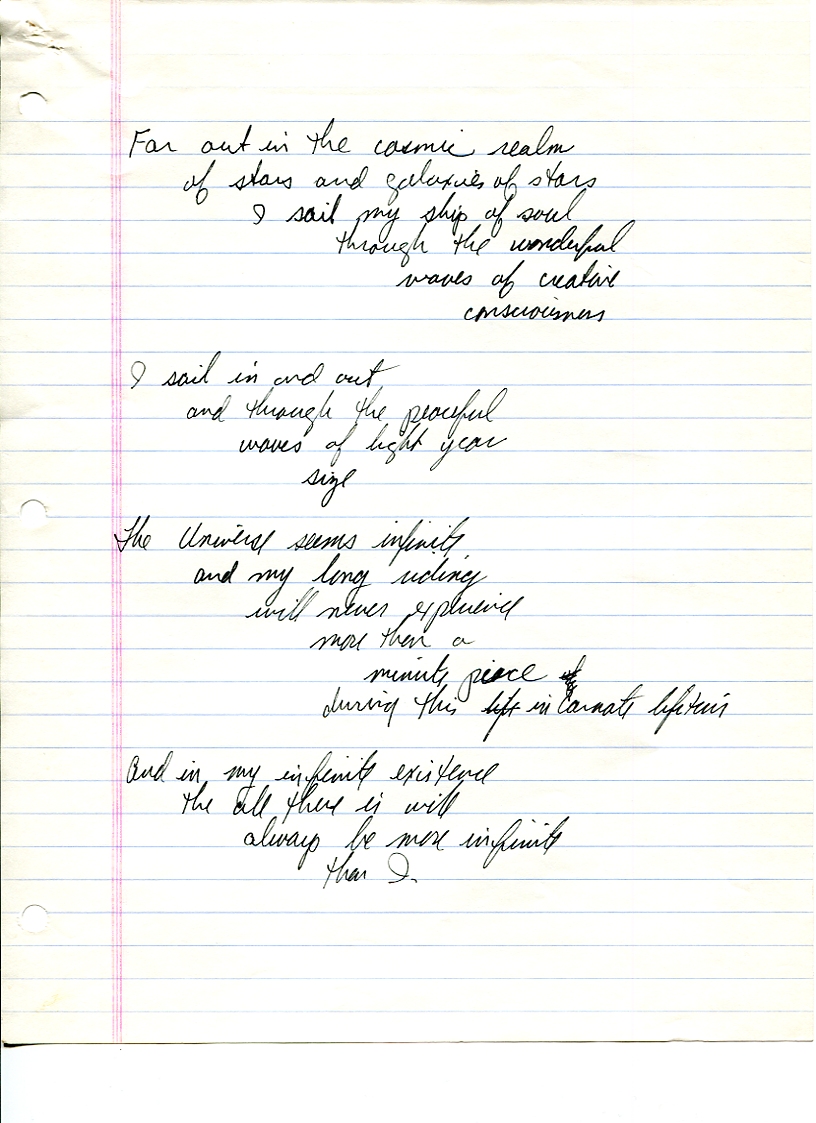 Far out in the cosmic realm
of stars and galaxies of stars
I sail my ship of soul
through the wonderful
waves of creative
consciousness
I sail in and out
and through the peaceful
waves of light year
size
The Universe seems infinite
and my long riding
will never experience
more than a
minute piece
during this life incarnate lifetime
And in my infinite existence
the all there is will
always be more infinite
than I.